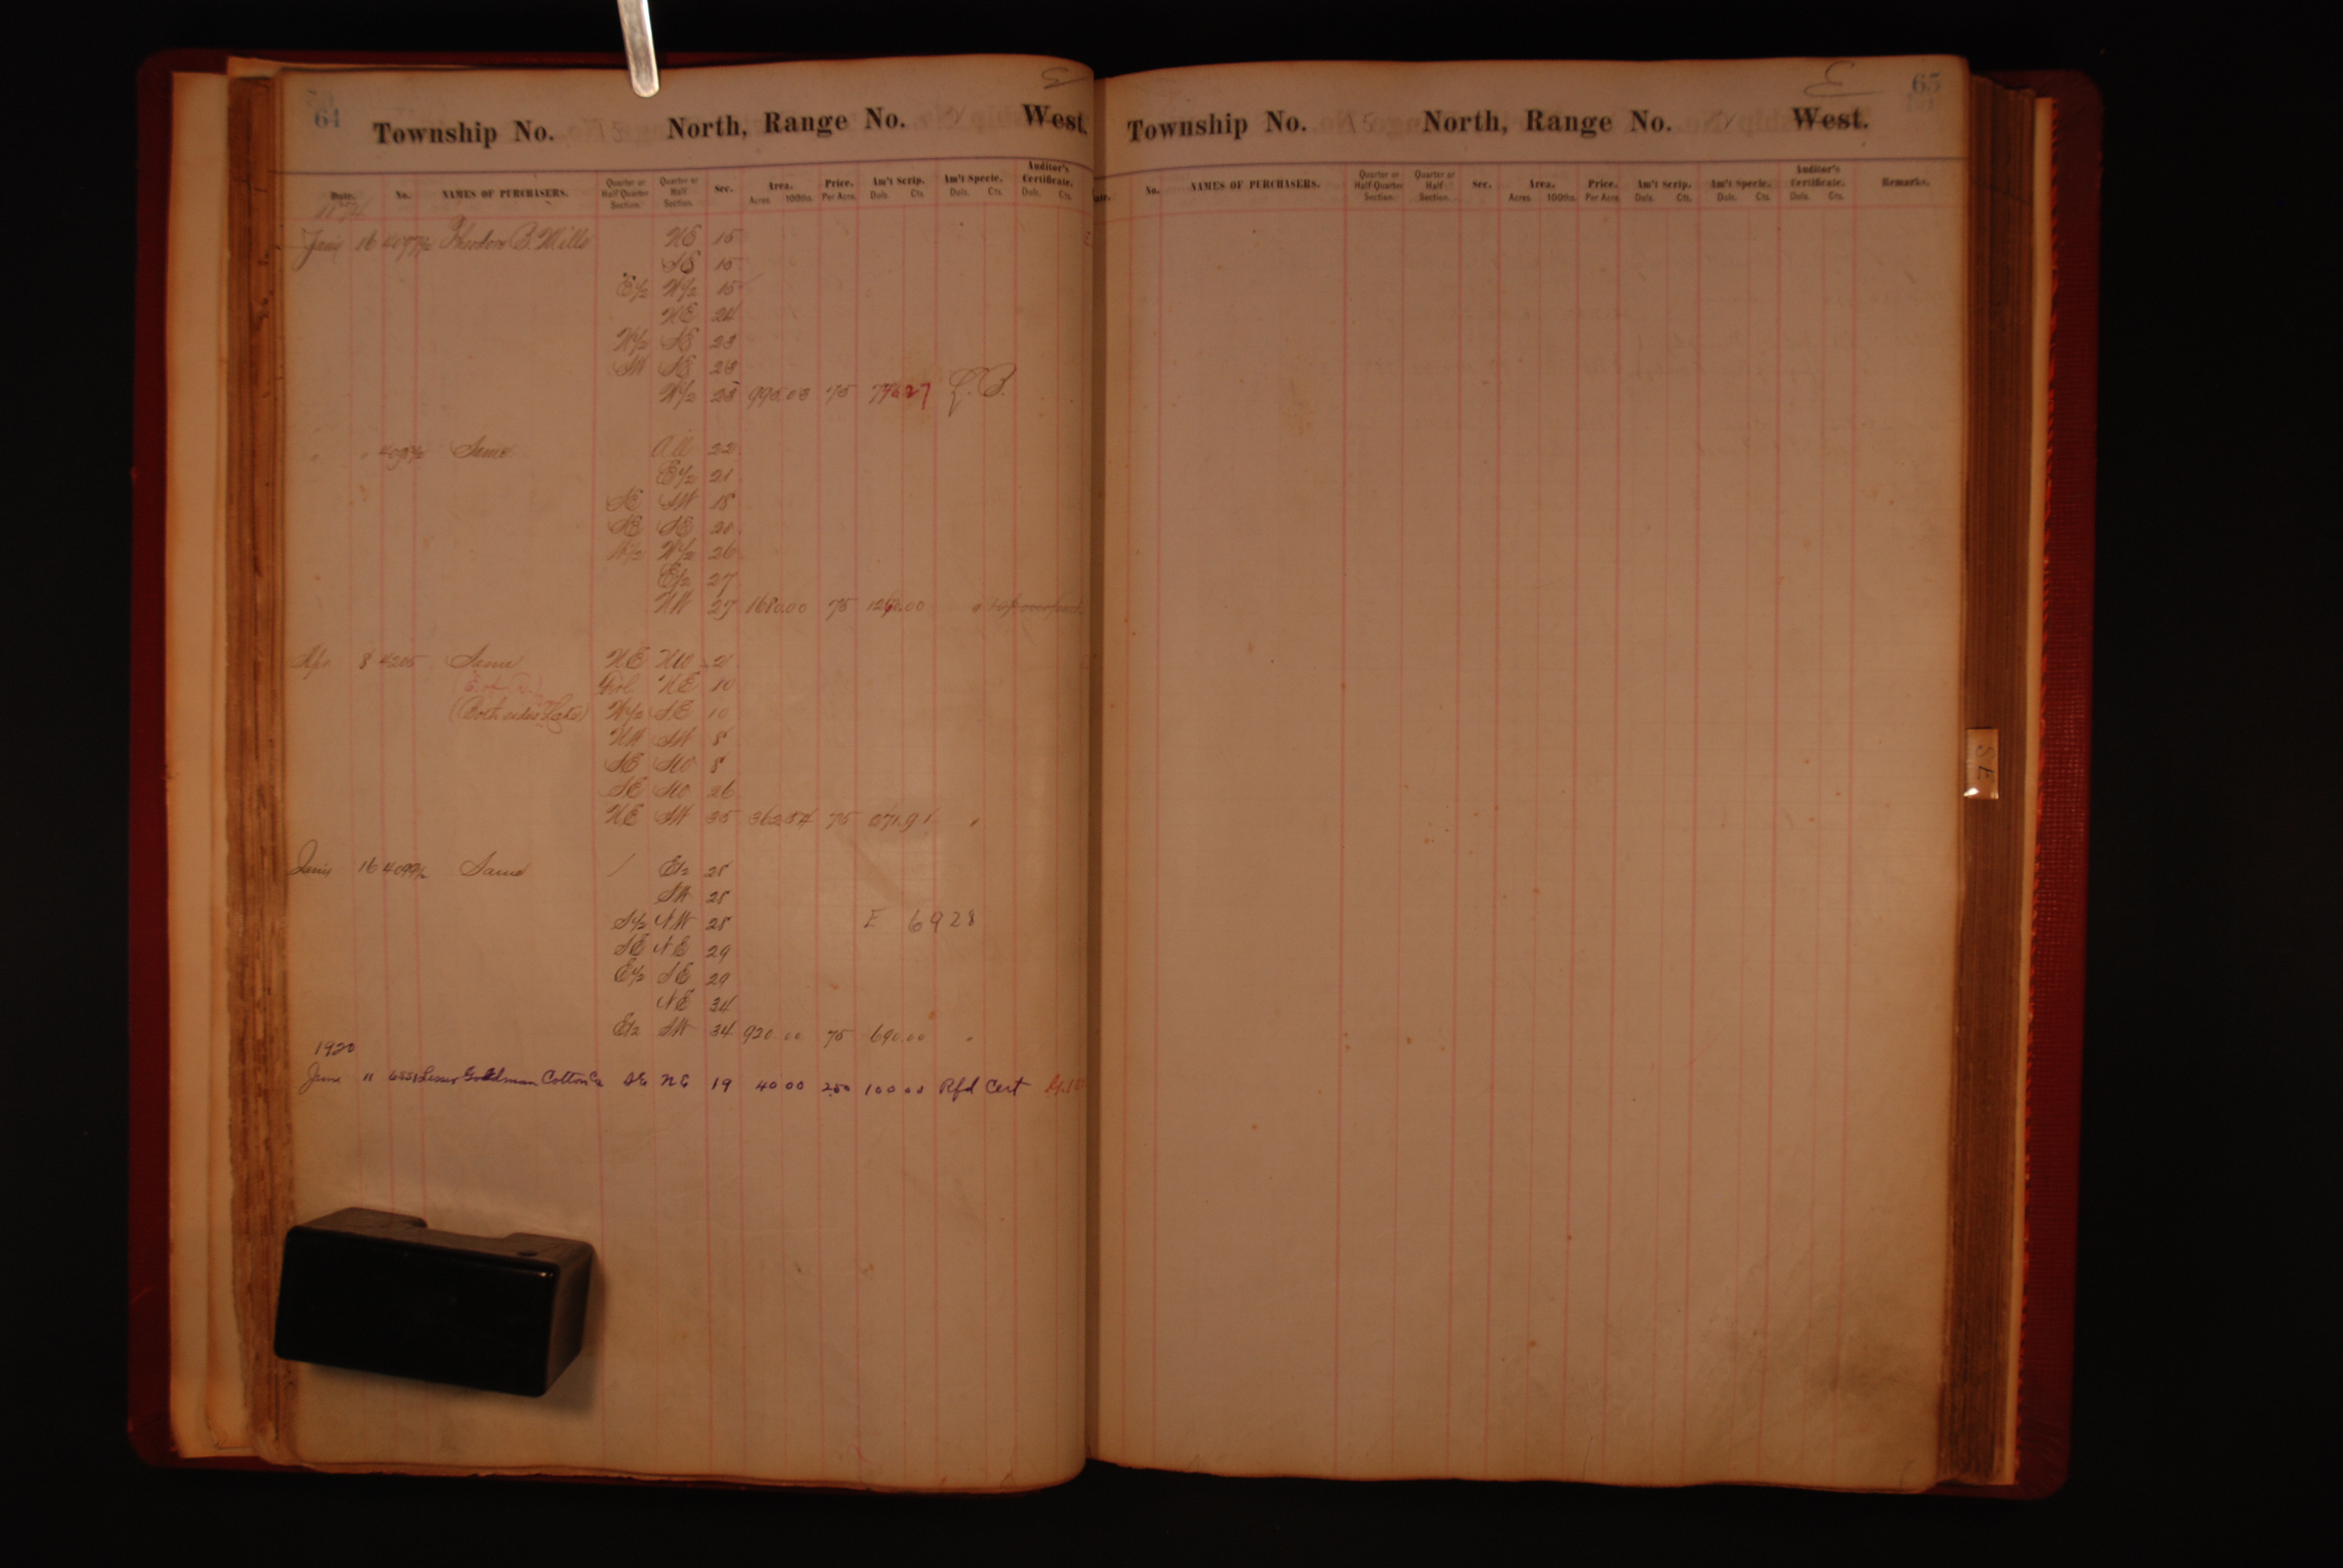 64
E
Township No. North, Range No. West.
Date. No. NAMES OF PURCHASERS. Quarter or Half Quarter Section. Quarter or Half Section. Sec. Area. Acres 100ths. Price. Per Acre. Am't Scrip. Dols. Cts. Am't Specie. Dols. Cts. Auditor's Certificate. Dols. Cts.
16 4097½ Theodore B. Mills NE 15
SE 15
E½ W½ 15
NE 24
W½ SE 23
SW SE 23
W½ 23 995.03 75 L.B.
" " Same All 22
E½ 21
SE SW 18
SE SE 20
W½ W½ 26
E½ 27
NW 27 1680.00 75 1260.00
Apr. 8 4205 Same NE NW 2
Frl. NE 10
(Both sides Lake) W½ SE 10
NW SW 8
SE SW 8
SE SW 26
NE SW 35 362.54 75 271.91 "
16 4099½ Same E½ 28
SW 28
S½ NW 28 E 6928
SE NE 29
E½ SE 29
NE 34
E½ SW 34 920.00 75 690.00 "
1920
June 11 6551 Lesser Goldman Cotton Co SE NE 19 40 00 2.50 100 00 Rfd Cert
65
E
Township No. North, Range No. West.
No. NAMES OF PURCHASERS. Quarter or Half Quarter Section. Quarter or Half Section. Sec. Area. Acres 100ths. Price. Per Acre Am't Scrip. Dols. Cts. Am't Specie. Dols. Cts. Auditor's Certificate. Dols. Cts. Remarks.
SE